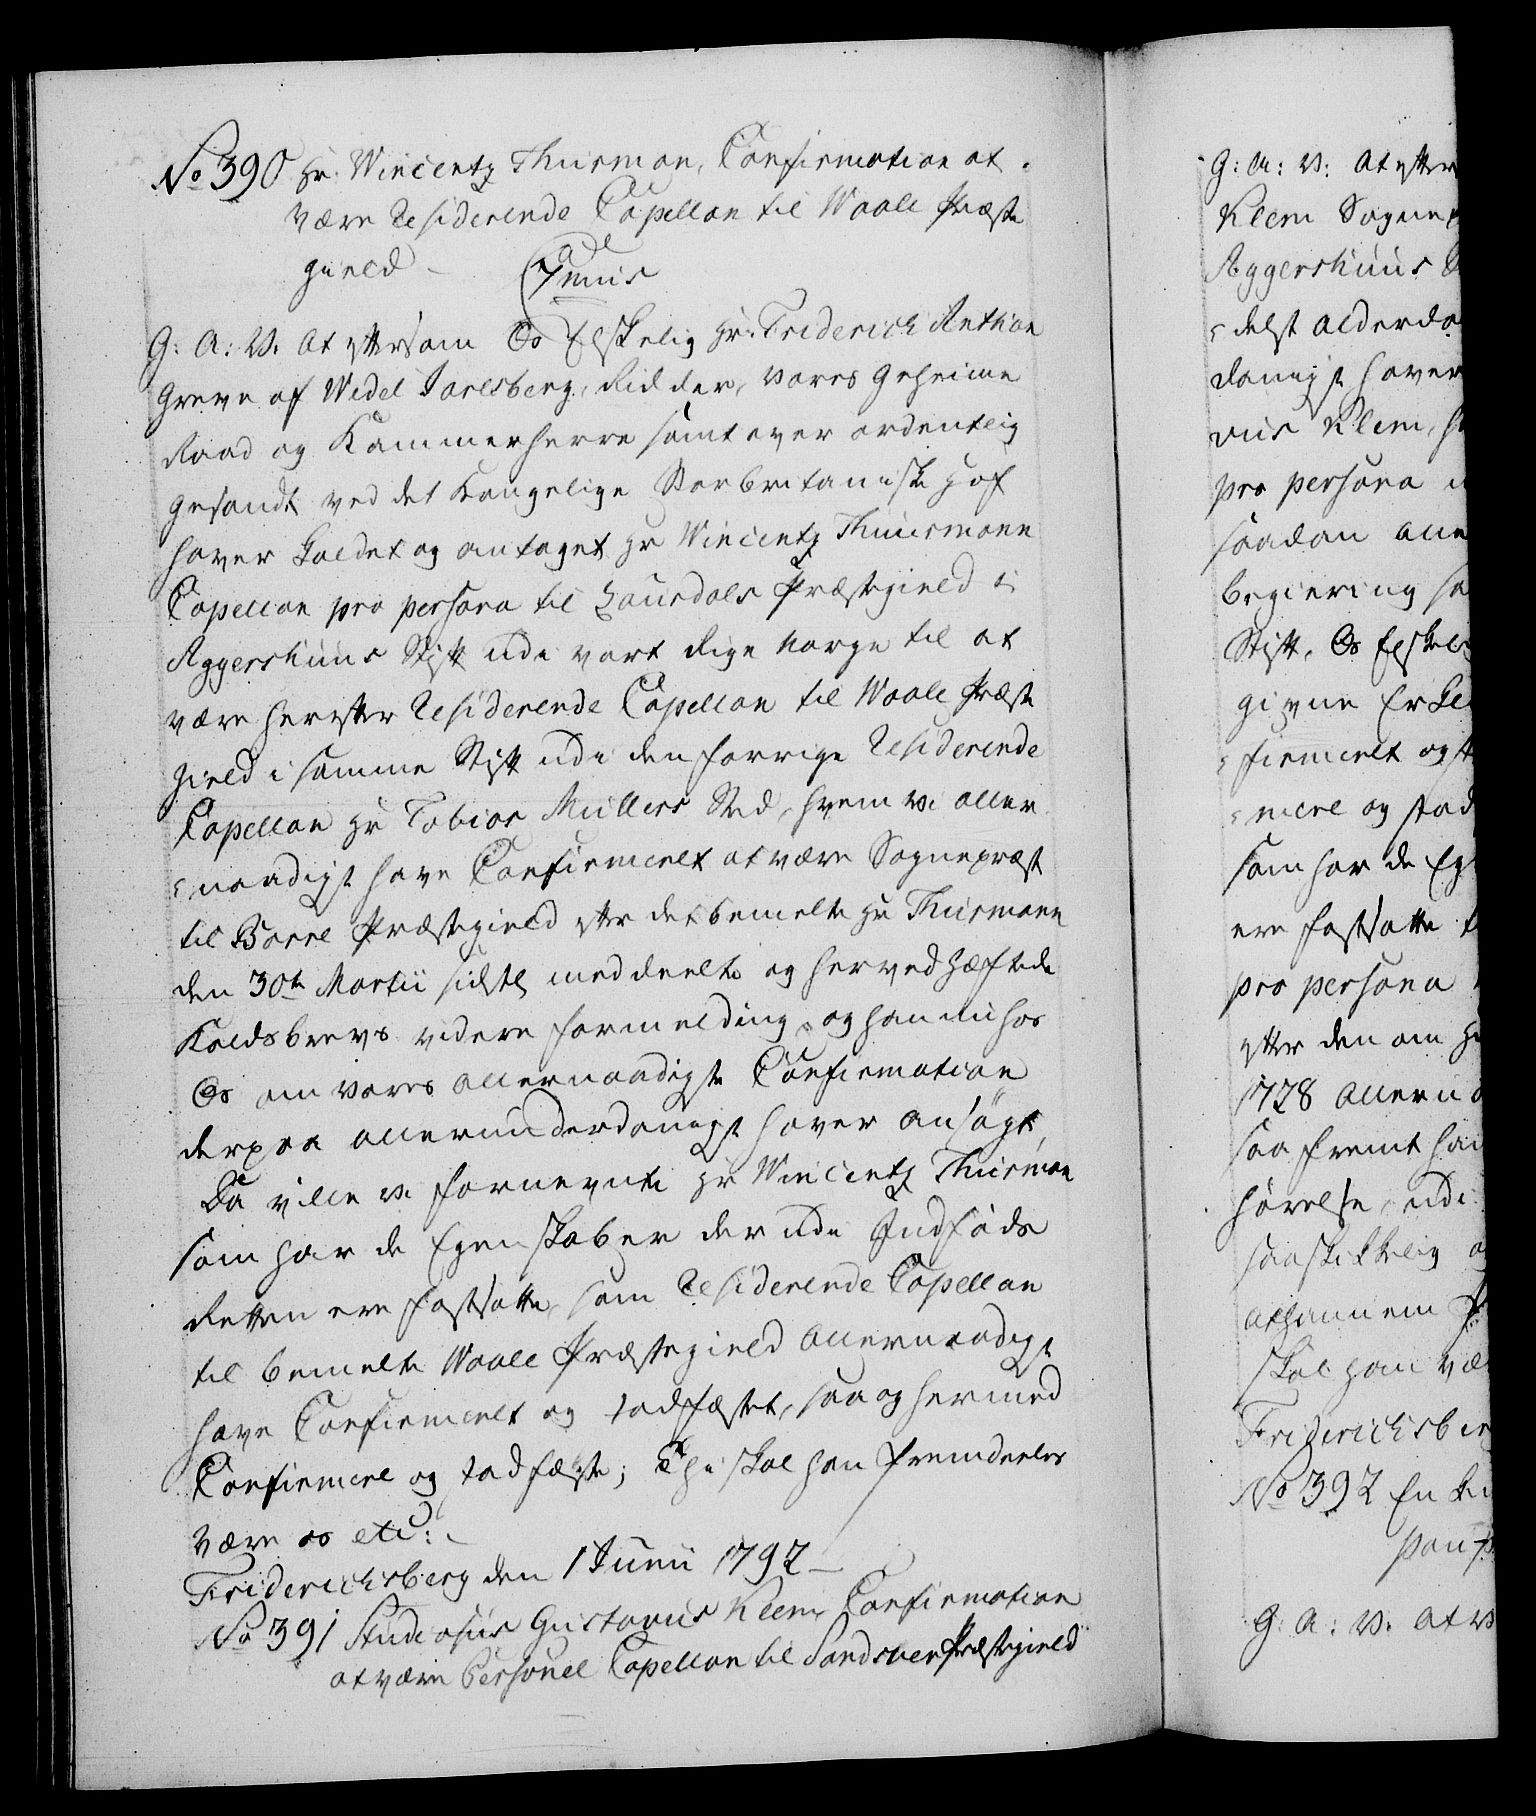 No 390 Hr. Wincentz Thurman, Confirmation at
være residerende Capellan til Waale Præste
gield
C7mus
G: A: V. At eftersom Os Elskelig Hr. Friderich Anthon
Greve af Wedel Jarlsberg, Ridder, vores Geheime
Raad og Kammerherre samt over ordentlig
Gesandt ved det Kongelige Storbritaniske Hof
haver kaldet og antaget Hr Wincentz Thuurmann
Capellan pro persona til Laurdals Præstegield i
Aggershuus Stift udi vort Rige Norge til at
være herefter Residerende Capellan til Waale Præste
gield i samme Stift udi den forrige Residerende
Capellan Hr Tobias Müllers Sted, hvem vi aller
naadigst have Confirmeret at være Sognepræst
til Borre Præstegield efter det bemelte Hr Thurmann
den 30te Martii sidstl meddeelte og herved hæftede
Kaldsbrevs videre formelding, og han nu hos
Os om vores allernaadigste Confirmation
derpaa allerunderdanigst haver ansøgt,
Da ville vi fornevnte Hr Wincentz Thurman
som har de Egenskaber der udi Indføds
Retten ere fastsatte, som Residerende Capellan
til bemelte Waale Præstegield Allernaadigst
have Confirmeret og stadfæstet, saa og hermed
Confirmere og stadfæste; Thi skal han fremdeeles
være os etc:
Friderichsberg den 1 Junii 1792
No 391 Studiosus Gustavus Klem, Confirmation
at være Personel Capellan til Sandsver Præstegield
G: A: V: At efter
Klem Sogne
Aggershuus
delst alderdo
danigst haver
vus Klem,
pro persona
saadan alle
begiering
Stift, Os Elskel
givne Erkl
firmeret og st
mere og stad
som har de Eg
ere fastsatte
pro persona
efter den om
1728 Alleru
saa fremt han
hørelse, udi
saa skikkelig
at hannem
skal han væ
Friderichsber
No 392 En
G: A: V. At v